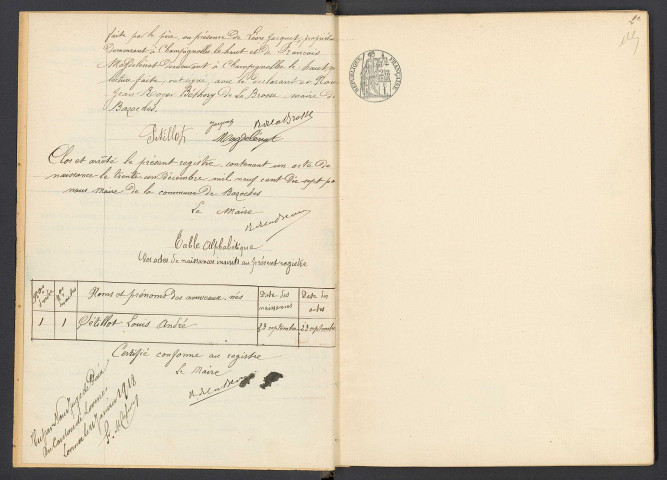 faite par le père, en présence de Léon Jacquet, propriétaire
demeurant à Champignolles le haut et de François
Magdelénat demeurant à Champignolles le haut
lecture faite, ont signé avec le déclarant et Nous
Jean Roger Béthery de La Brosse maire de
Bazoches.
Petillot Jacquet B. de La Brosse
Magdelénat
Clos et arrêté le présent registre contenant un acte de
naissance le trente un Décembre mil neuf cent Dix sept par
nous Maire de la commune de Bazoches
Le Maire
Table Alphabétique
des actes de naissances inscrits au présent registre
Nos Nos Noms et prénoms des nouveaux-nés Date des naissances Date des actes
1 1 Pétillot Louis André 23 septembre 23 septembre
Certifié conforme au registre
Le Maire
Vu par Nous Juge de Paix
du Canton de Lormes
Lormes le janvier 1918
RÉPUBLIQUE FRANÇAISE